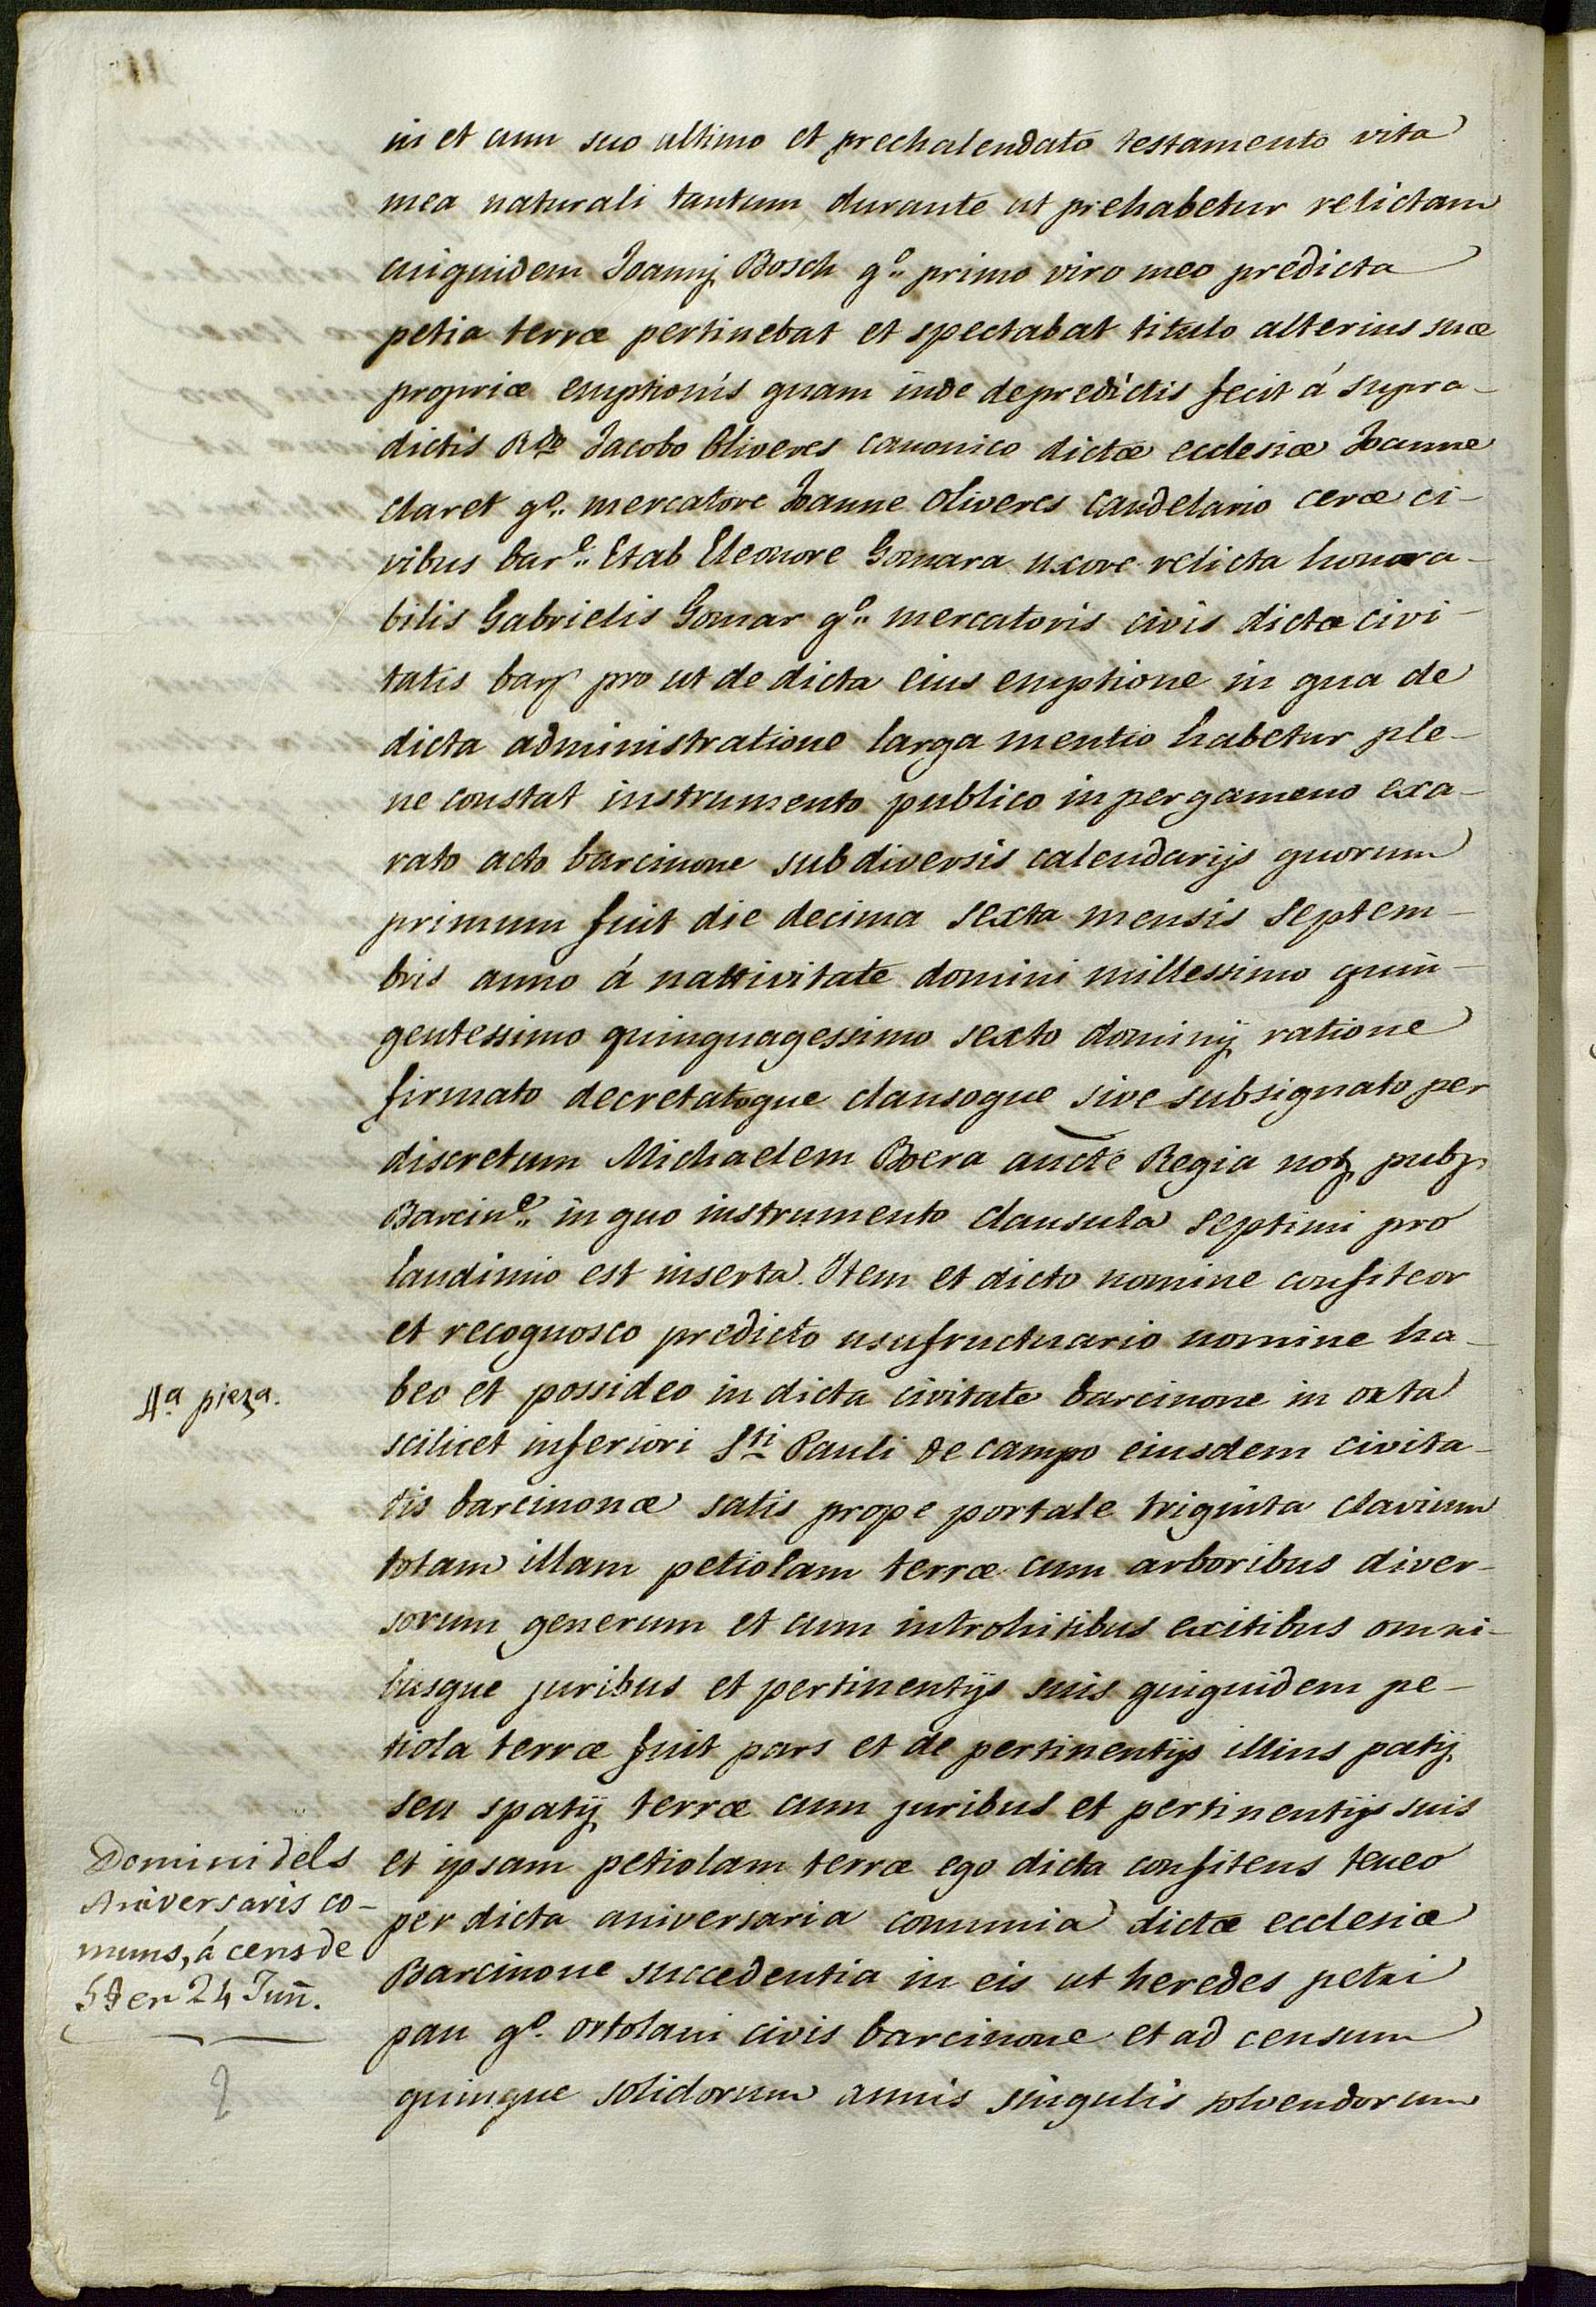 in et cum suo ultimo et prechalendato testamento vita
mea naturali tantum durante ut prehabetur relictam
cuiquidem Joannij Bosch qº primo viro meo predicta
petia terræ pertinebat et spectabat titulo alterius suæ
propriæ emptionis quam inde de predictis fecit á supra-
dictis Rdo Jacobo Oliveres canonico dictæ ecclesiæ Joanne
claret qº. mercatore Joanne Oliveres candelario ceræ ci-
vibus bare. Et ab Eleonore Gomara uxore relicta honora-
bilis Gabrielis Gomar qº mercatoris civis dictæ civi-
tatis bar pro ut de dicta eius emptione in qua de
dicta administratione larga mentio habetur ple-
ne constat instrumento publico in pergameno exa-
rato acto barcinone sub diversis calendarijs quorum
primum fuit die decima sexta mensis septem-
bris anno á nattivitate domini millessimo quin-
gentessimo quinquagessimo sexto dominij ratione
firmato decretatoque clausoque sive subsignato per
discretum Michaelem Boera aucte Regia not pub
Barcine. in quo instrumento clausula septimi pro
laudimio est inserta. Item et dicto nomine confiteor
et recognosco predicto usufructuario nomine ha-
4a pieza.
beo et possideo in dicta civitate barcinone in orta
scilicet inferiori Sti Pauli de campo eiusdem civita-
tis barcinonæ satis prope portale triginta clavium
totam illam petiolam terræ cum arboribus diver-
sorum generum et cum introhitibus exitibus omni-
busque juribus et pertinentijs suis quiquidem pe-
tiola terræ fuit pars et de pertinentijs illius patij
seu spatij terræ cum juribus et pertinentijs suis
Domini dels
Aniversaris co-
muns, á cens de
5 en 24 Juñ.
et ipsam petiolam terræ ego dicta confitens teneo
per dicta aniversaria comunia dictæ ecclesiæ
Barcinone succedentia in eis ut heredes petri
pau qº. ortolani civis barcinone et ad censum
quinque solidorum annis singulis solvendorum